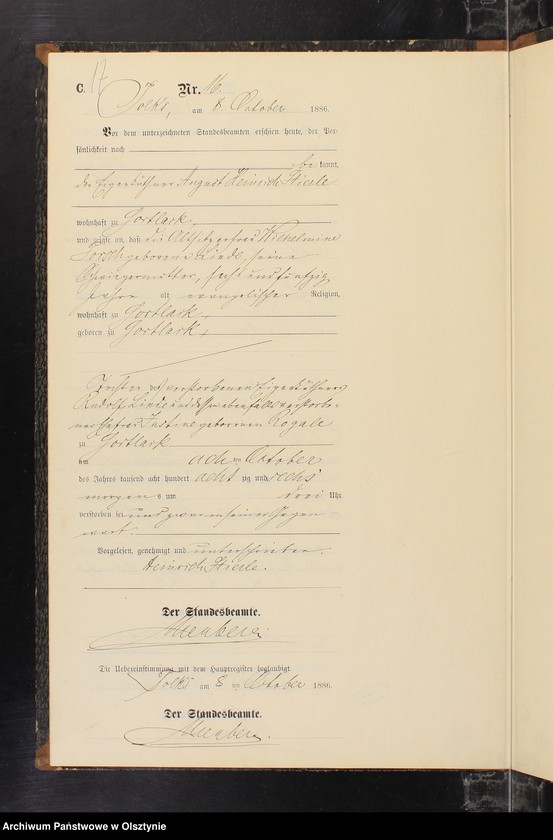 C. 17
Nr. 16.
Tolks, am 8. October 1886.
Vor dem unterzeichneten Standesbeamten erschien heute, der Per-
sönlichkeit nach
be kannt,
der Eigenkäthner August Heinrich Stierle
wohnhaft zu Gortlack,
und zeigte an, daß die Altsitzerfrau Wilhelmine
geborene Linde, seine
Schwiegermutter, sechs und fünfzig
Jahre alt, evangelischer Religion,
wohnhaft zu Gortlack,
geboren zu Gortlack,
Tochter des verstorbenen Eigenkäthners
Rudolf Linde und dessen ebenfalls verstorbe-
nen Ehefrau Justine geborenen Rogalli
zu Gortlack
am acht October
des Jahres tausend acht hundert acht zig und sechs
morgens um drei Uhr
verstorben sei, und zwar in seiner Gegen-
wart.
Vorgelesen, genehmigt und unterschrieben.
Heinrich Stierle.
Der Standesbeamte.
Die Uebereinstimmung mit dem Hauptregister beglaubigt
Tolks am 8 ten October 1886.
Der Standesbeamte.
Archiwum Państwowe w Olsztynie